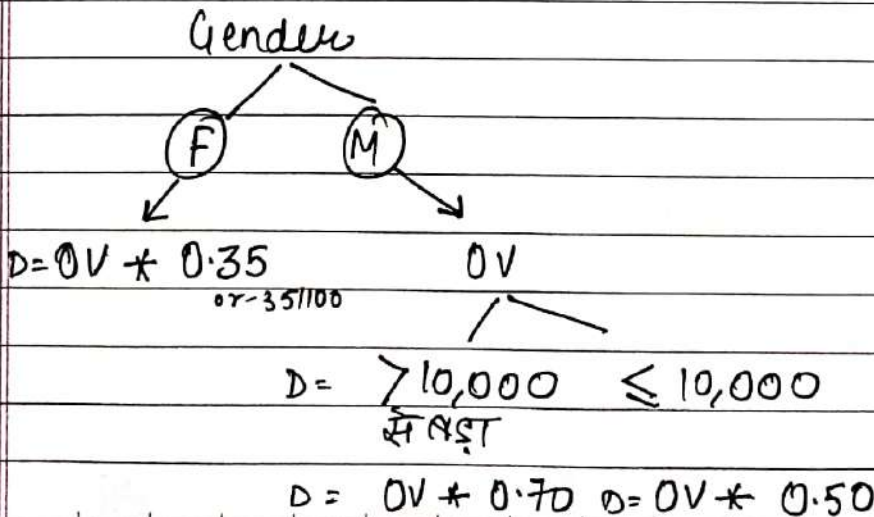 Gender
F M
D= OV * 0.35 OV
or-35/100
D= >10,000 ≤ 10,000
से बड़ा
D= OV * 0.70 D= OV * 0.50